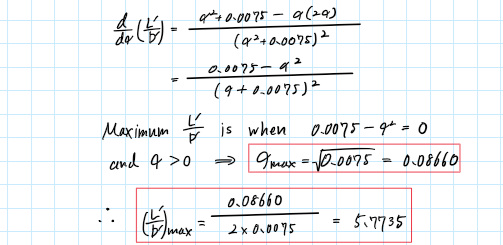 d/da (L'/D') = (a² + 0.0075 - a(2a)) / (a² + 0.0075)²
= (0.0075 - a²) / (a + 0.0075)²
Maximum L'/D' is when 0.0075 - a² = 0
and a > 0 ⇒ a_max = √0.0075 = 0.08660
∴ (L'/D')_max = 0.08660 / (2 × 0.0075) = 5.7735